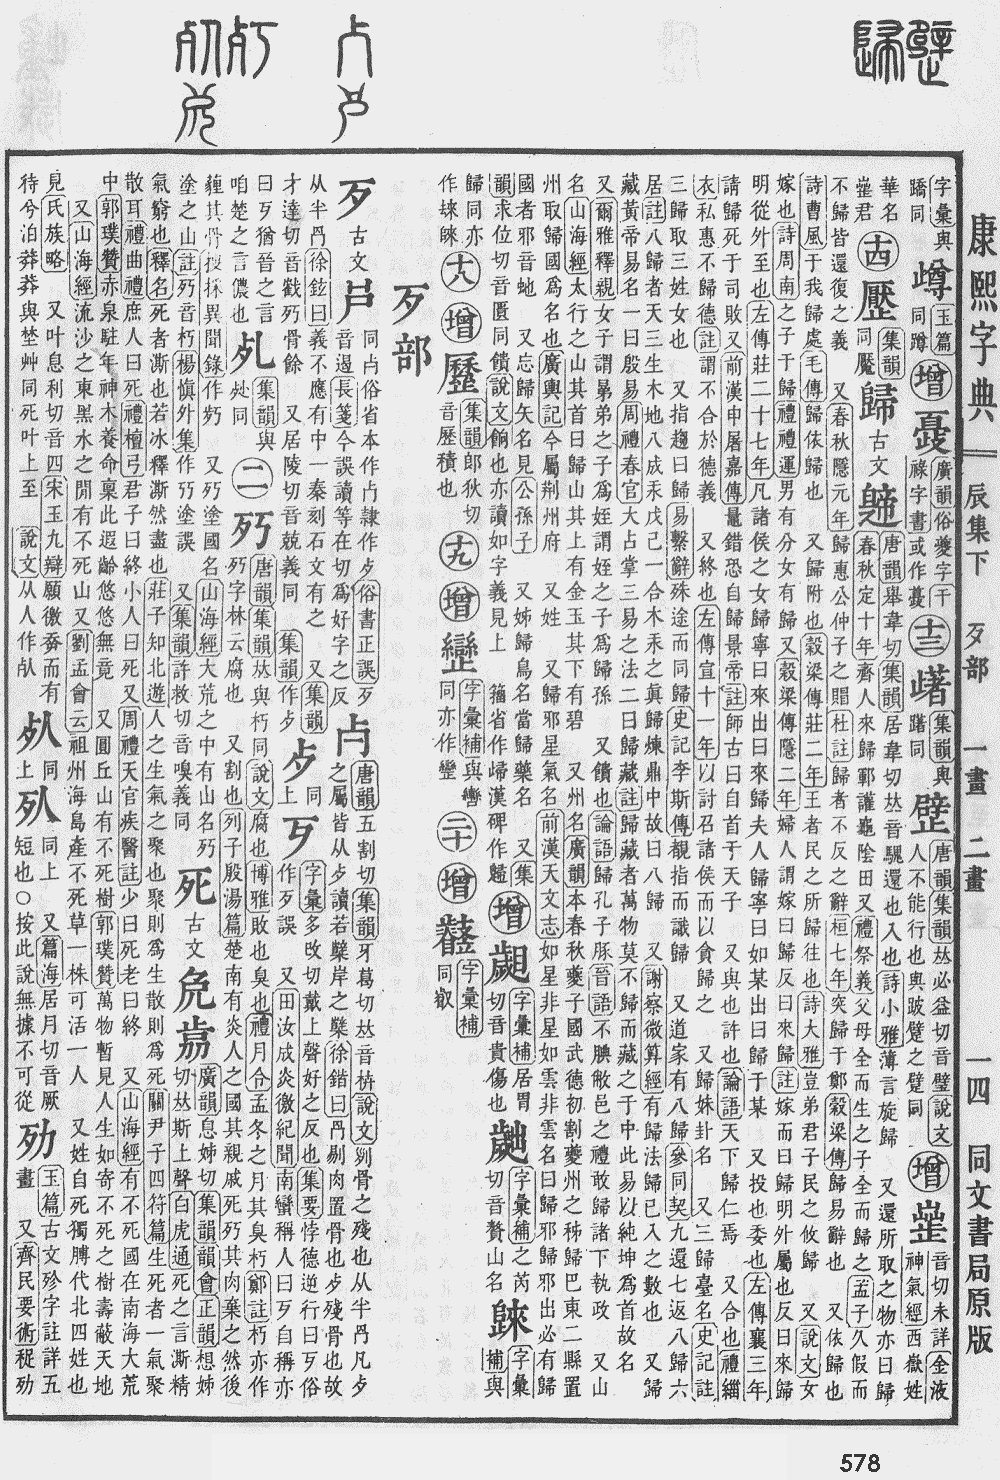 康熙字典
辰集下 歹部 一畫 二畫
一四 同文書局原版
字彙與
蹲同
玉篇
同蹲
增
廣韻俗夔字
十三
集韻與
躇同
躄
唐韻集韻𠀤必益切音璧說文
人不能行也與跛躄之躄同
增
音切未詳金液
神氣經西嶽姓
華名
君
十四
歷
集韻
同魘
歸
古文
唐韻舉韋切集韻居韋切𠀤音騩還也入也詩小雅薄言旋歸 又還所取之物亦曰歸
春秋定十年齊人來歸鄆讙龜陰田又禮祭義父母全而生之子全而歸之 孟子久假而
不歸皆還復之義 又春秋隱元年歸惠公仲子之賵杜註歸者不反之辭桓七年突歸于鄭穀梁傳歸易辭也 又依歸也
詩曹風于我歸處毛傳歸依歸也 又歸附也穀梁傳莊二年王者民之所歸往也詩大雅豈弟君子民之攸歸 又說文女
嫁也詩周南之子于歸禮禮運男有分女有歸又穀梁傳隱二年婦人謂嫁曰歸反曰來歸註嫁而曰歸明外屬也反曰來歸
明從外至也左傳莊二十七年凡諸侯之女歸寧曰來出曰來歸夫人歸寧曰如某出曰歸于某 又投也委也左傳襄三年
請歸死于司敗又前漢申屠嘉傳鼂錯恐自歸景帝註師古曰自首于天子 又與也許也論語天下歸仁焉 又合也禮緇
衣私惠不歸德註謂不合於德義 又終也左傳宣十一年以討召諸侯而以貪歸之 又歸妹卦名 又三歸臺名史記註
三歸取三姓女也 又指趨曰歸易繫辭殊途而同歸史記李斯傳覩指而識歸 又道家有八歸參同契九還七返八歸六
居註八歸者天三生木地八成汞戊己一合木汞之眞歸煉鼎中故曰八歸 又謝察微算經有歸法歸已入之數也 又歸
藏黃帝易名一曰殷易周禮春官大占掌三易之法二曰歸藏註歸藏者萬物莫不歸而藏之于中此易以純坤爲首故名
又爾雅釋親女子謂晜弟之子爲姪謂姪之子爲歸孫 又饋也論語歸孔子豚晉語不腆敝邑之禮敢歸諸下執政 又山
名山海經太行之山其首曰歸山其上有金玉其下有碧 又州名廣韻本春秋夔子國武德初割夔州之秭歸巴東二縣置
州取歸國爲名也廣輿記今屬荆州府 又姓 又歸邪星氣名前漢天文志如星非星如雲非雲名曰歸邪歸邪出必有歸
國者邪音蛇 又忘歸矢名見公孫子 又姊歸鳥名當歸藥名 又集
韻求位切音匱同饋說文餉也亦讀如字義見上
增
字彙補居胃
切音貴傷也
字彙補之芮
切音贅山名
字彙
補與
歸同亦
作
十八
增
集韻郎歷切
音歷積也
十九
增
字彙補與彎
同亦作
二十
增
字彙補
同叡
歹部
歹
古文
𡰮
同𡰪俗省本作歺隷作歹俗書正誤歹
音遏長箋今誤讀等在切爲好字之反
唐韻五割切集韻牙葛切𠀤音枿說文列骨之殘也从半冎凡歺
之屬皆从歺讀若櫱岸之櫱徐鍇曰冎剔肉置骨也歺殘骨也故
从半冎徐鉉曰義不應有中一秦刻石文有之 又集韻
才達切音巀歹骨餘 又居陵切音兢義同
集韻作歺
歺
同
上
歹
字彙多改切戴上聲好之反也集要悖德逆行曰歹俗
作歹誤 又田汝成炎徼紀聞南蠻稱人曰歹自稱亦
曰歹猶晉之言
咱楚之言儂也
集韻與
同
二
𣦸
唐韻集韻𠀤與朽同說文腐也博雅敗也臭也禮月令孟冬之月其臭朽鄭註朽亦作
𣦸字林云腐也 又割也列子殷湯篇楚南有炎人之國其親戚死𣦸其肉棄之然後
薶其骨 又𣦸塗國名山海經大荒之中有山名𣦸
塗之山註𣦸音朽楊愼外集作㱙塗誤 又集韻許救切音嗅義同
死
古文
廣韻息姊切集韻韻會正韻想姊
切𠀤斯上聲白虎通死之言澌精
氣窮也釋名死者澌也若冰釋澌然盡也莊子知北遊人之生氣之聚也聚則爲生散則爲死關尹子四符篇生死者一氣聚
散耳禮曲禮庶人曰死禮檀弓君子曰終小人曰死又周禮天官疾醫註少曰死老曰終 又山海經有不死國在南海大荒
中郭璞贊赤泉駐年神木養命稟此遐齡悠悠無竟 又圓丘山有不死樹郭璞贊萬物暫見人生如寄不死之樹壽敝天地
又山海經流沙之東黑水之閒有不死山又劉孟會云祖州海島產不死草一株可活一人 又姓自死獨膊代北四姓也
見氏族略 又叶息利切音四宋玉九辯願徼幸而有
待兮泊莽莽與埜艸同死叶上至 說文从人作
同
上
同上 又篇海居月切音厥
短也○按此說無據不可從
玉篇古文殄字註詳五
畫 又齊民要術
578